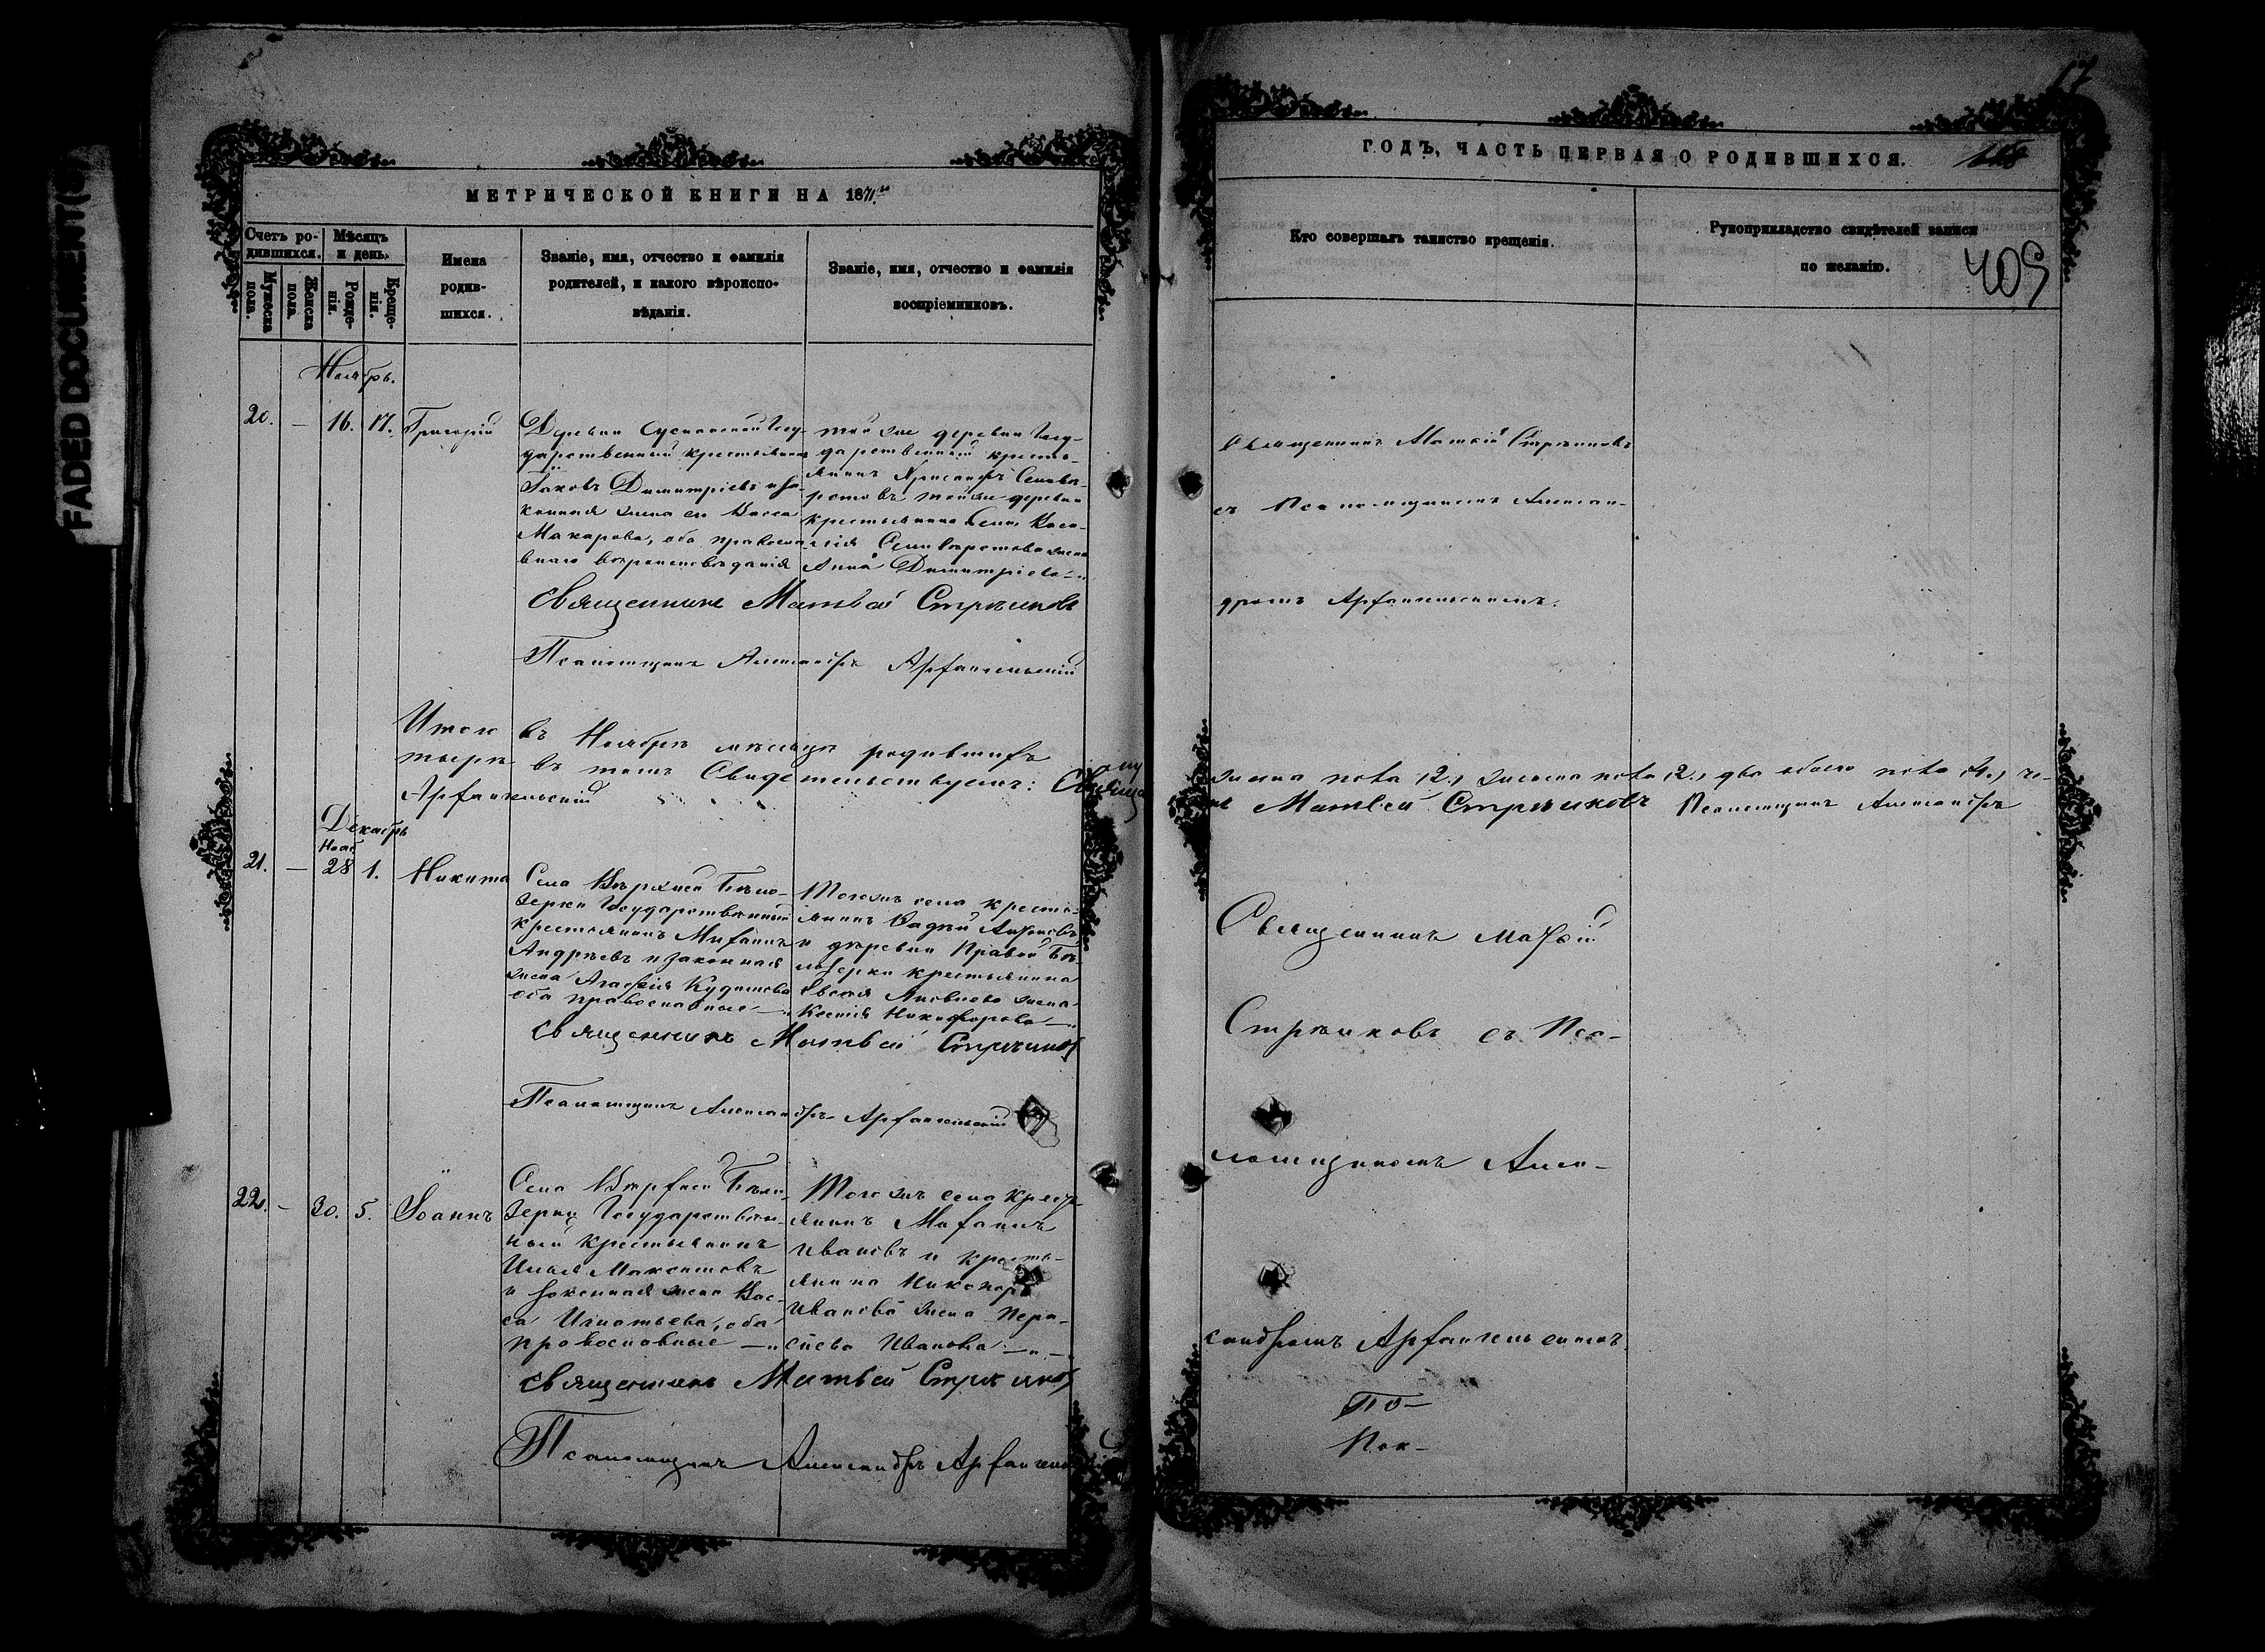 FADED DOCUMENT(S)
МЕТРИЧЕСКОЙ КНИГИ НА 1871.
Счетъ ро-
дившихся.
Мѣсяцъ
и день.
Мужеска
пола.
Женска
пола.
Рожде-
нія.
Креще-
нія.
Имена
родив-
шихся.
Званіе, имя, отчество и фамилія
родителей, и какого вѣроиспо-
вѣданія.
Званіе, имя, отчество и фамилія
воспріемниковъ.
Ноябрь.
20. — 16. 17. Григорій
Деревни Госу-
дарственный крестьянинъ
Іаковъ Димитріевъ и за-
конная жена его Васса
Макарова, оба правосла-
внаго вѣроисповѣданія
той же деревни Госу-
дарственный кресть-
янинъ
той же деревни
крестьянина
жена
Анна Димитріева
Священникъ Матвей Стрѣлковъ
Псаломщикъ Александръ Архангельскій
Итого въ Ноябрѣ мѣсяцѣ родившихъ
тыре въ томъ Свидетельствуемъ: Священ
Архангельскій
Декабрь
Нояб
21. — 28 1. Никита
Села Верхней Бѣло-
зерки Государственный
крестьянинъ Михаилъ
Андреевъ и законная
жена Агафія
оба православные
Тогожъ села кресть-
янинъ
и деревни Правой Бѣ-
лозерки крестьянина
Яковлева жена
Ксенія Никифорова
Священникъ Матвей Стрѣлковъ
Псаломщикъ Александръ Архангельскій
22. — 30. 5. Іоаннъ
Села Верхней Бѣло-
зерки Государствен-
ный крестьянинъ
Илья Максимовъ
и законная жена Вас-
са Игнатьева, оба
православные
Того жъ села кресть-
янинъ Михаилъ
Ивановъ и кресть-
янина Никонора
Иванова жена Пара-
скева Иванова
Священникъ Матвей Стрѣлковъ
Псаломщикъ Александръ Архангель
17
ГОДЪ, ЧАСТЬ ПЕРВАЯ О РОДИВШИХСЯ.
Кто совершалъ таинство крещенія.
Рукоприкладство свидѣтелей записи
по желанію.
409
Священникъ Матѳій Стрѣлковъ
съ Псаломщикомъ Алексан-
дромъ Архангельскимъ.
жеска пола 2., женска пола 2., два обоего пола 4., че-
къ Матвей Стрѣлковъ Псаломщикъ Александръ
Священникъ Матѳій
Стрѣлковъ съ Пса-
ломщикомъ Алек-
сандромъ Архангельскимъ.
По-